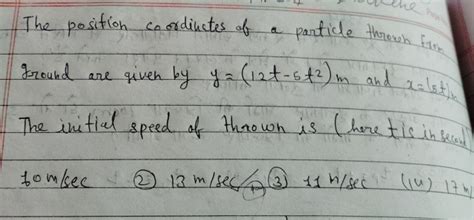 The position coordinctes of a particle thrown from
ground are given by y = (12t - 5t²) m and x = (5t)
The initial speed of thrown is (here t is in second
10 m/sec ② 13 m/sec ③ 11 m/sec (14) 17 m/